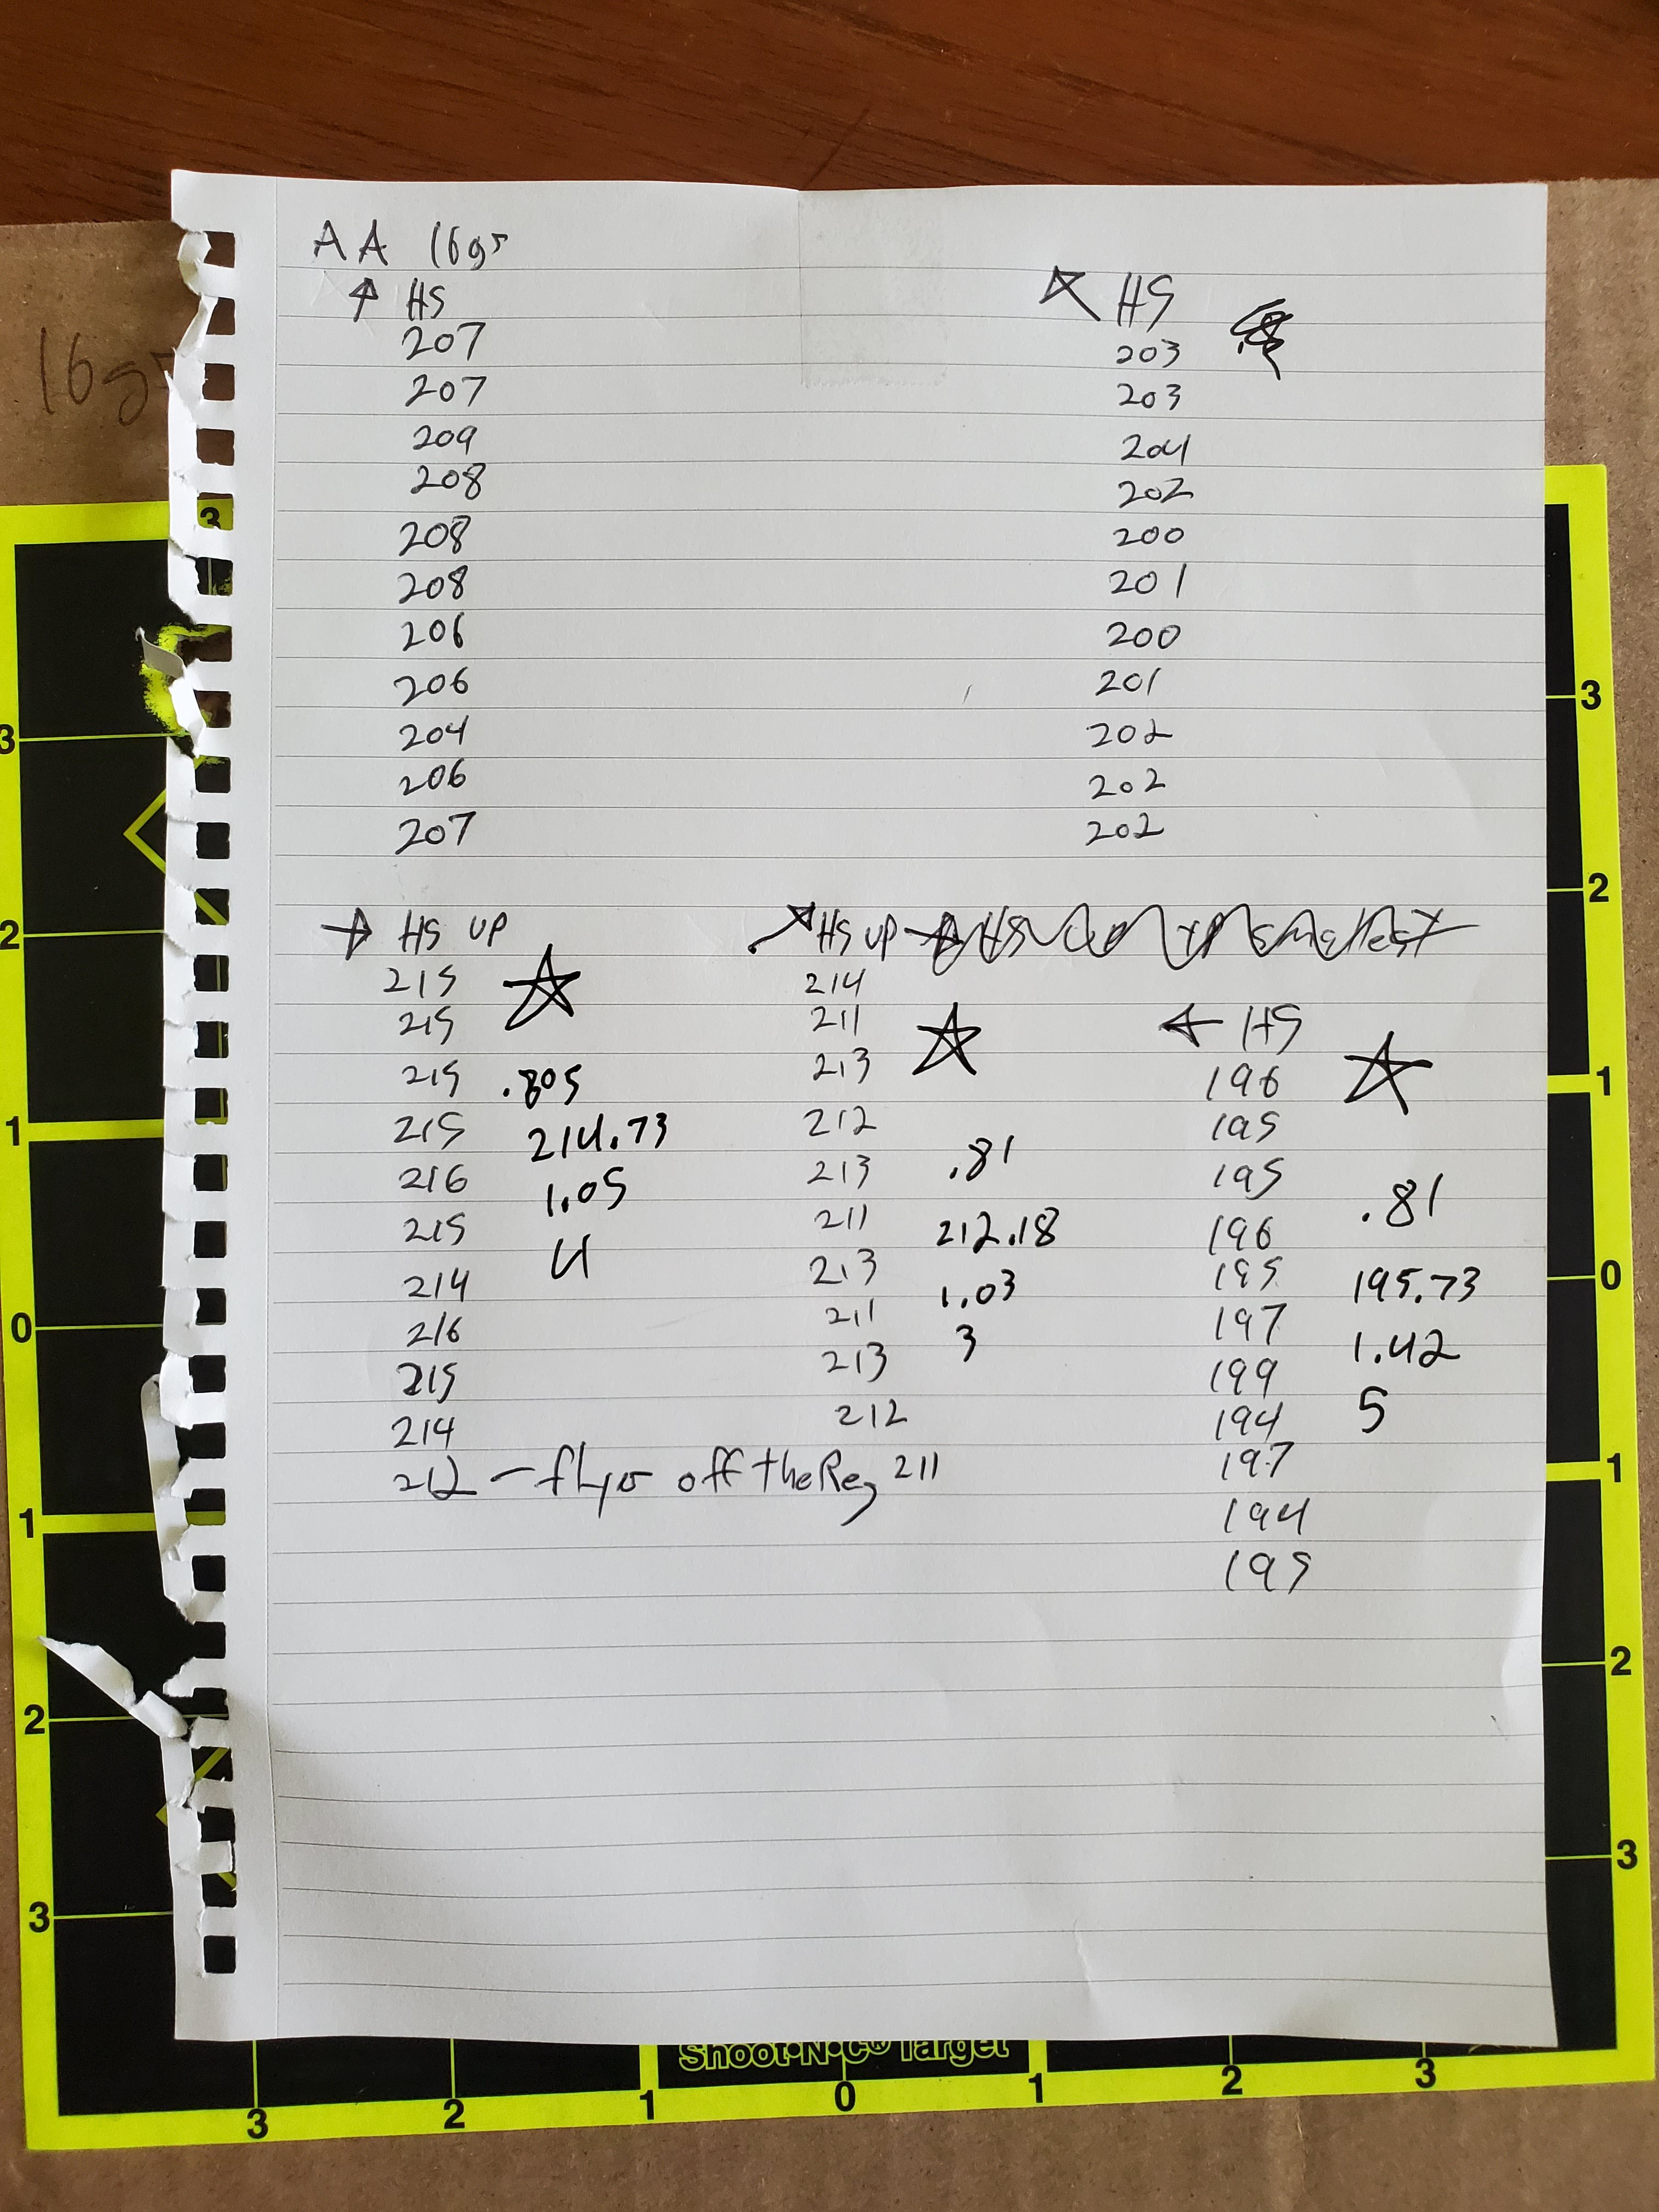 AA 16gr
↑ HS
207
207
209
208
208
208
206
206
204
206
207
↖ HS
203
203
204
202
200
201
200
201
202
202
202
→ HS UP
215
215
215
215
216
215
214
216
215
214
212 - flyer off the Reg
.805
214.73
1.05
4
↗ HS UP
214
211
213
212
213
211
213
211
213
212
211
.81
212.18
1.03
3
← HS
196
195
195
196
195
197
199
194
197
194
195
.81
195.73
1.42
5
16gr
3
3
2
1
0
1
2
3
3
2
1
0
1
2
3
Shoot•N•C® Target
3
2
1
0
1
2
3